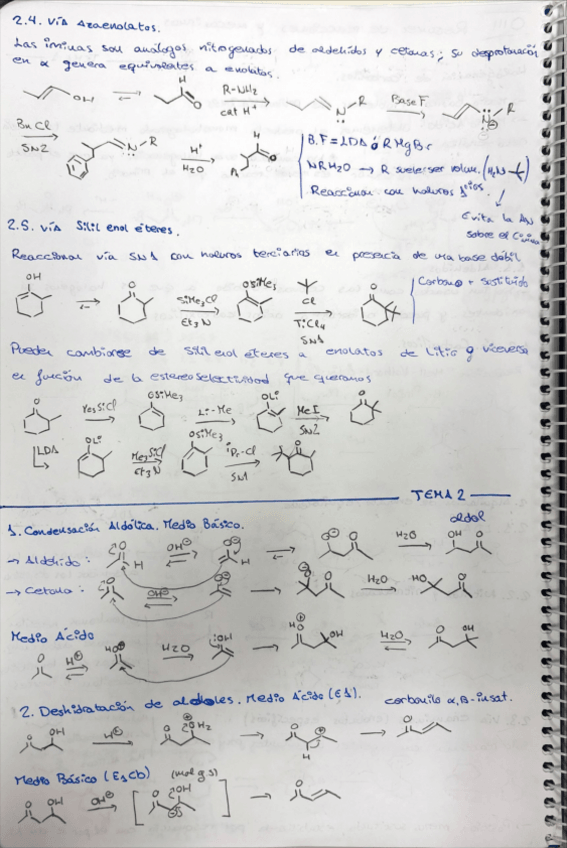 2.4. Vía Azaenolatos.
Las iminas son análogos nitrogenados de aldehídos y cetonas; su desprotonación
en α genera equivalentes a enolatos.
OH ⇌ H O R-NH2 cat H⁺ N R Base F N⊖ R
BnCl SN2 N R H⁺ H2O H O
B.F = LDA ó RMgBr
R suele ser volum. (H2N
Reaccionan con haluros 1ºios.
Evita la AN
sobre el C imino
2.5. Vía Silil enol éteres.
Reaccionan vía SN1 con haluros terciarios en presencia de una base débil
OH ⇌ O SiMe3Cl Et3N OSiMe3 Cl TiCl4 SN1 O
Carbono + sustituido
Pueden cambiarse de silil enol éteres a enolatos de litio y viceversa
en función de la estereoselectividad que queramos
O Me3SiCl OSiMe3 Li-Me OLi MeI SN2 O
LDA OLi Me3SiCl Et3N OSiMe3 iPr-Cl SN1 O
TEMA 2
1. Condensación Aldólica. Medio Básico.
aldol
→ Aldehído: O H OH⊖ O H O⊖ O H2O OH O
→ Cetona: O OH⊖ O O⊖ O H2O HO O
Medio Ácido
O H⊕ HO⊕ H2O OH HO⊕ OH H2O O OH
2. Deshidratación de aldoles. Medio Ácido (E1). carbonilo α,β-insat.
O OH H⊕ O ⊕OH2 O ⊕ H O
Medio Básico (E1cb)
O OH OH⊖ O OH ⊖ O